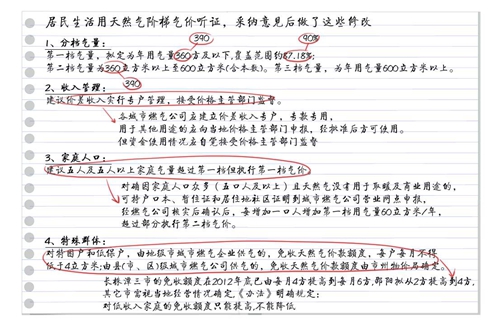 居民生活用天然气阶梯气价听证，采纳意见后做了这些修改
390
90%
1、分档气量：
第一档气量，拟定为年用气量360方及以下，覆盖范围约87.18%
第二档气量为360立方米以上至600立方米(含本数)。第三档气量，为年用气量600立方米以上。
390
2、收入管理：
建议价差收入实行专户管理，接受价格主管部门监督。
各城市燃气公司应建立价差收入专户，专款专用，
用于其他用途的应向当地价格主管部门申报，经批准后方可使用。
但资金使用情况应自觉接受价格主管部门监督
3、家庭人口：
建议五人及五人以上家庭气量超过第一档但执行第一档气价
对确因家庭人口众多（五口人及以上）且天然气没有用于取暖及商业用途的，
可持户口本、暂住证和居住地社区证明到城市燃气公司营业网点申报，
经燃气公司核实后确认后，每增加一口人增加第一档用气量60立方米/年，
超过部分执行第二档气价。
4、特殊群体：
对特困户和低保户，由地级市城市燃气企业供气的，免收天然气价款额度，每户每月不得
低于4立方米；由县(市、区)级城市燃气公司供气的，免收天然气价款额度由市州物价局确定。
长株潭三市的免收额度在2012年底已由每月4方提高到每月6方，邵阳拟从2方提高到4方，
其它市需视当地经营情况确定，《办法》明确规定：
对低收入家庭的免收额度只能提高，不能降低